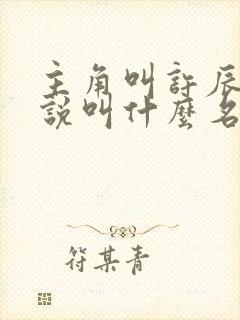 主角叫許辰
說叫什麼名
符某青